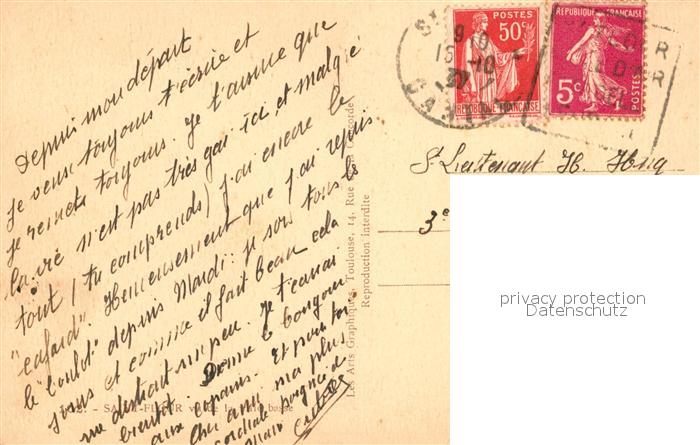 Depuis mon départ
je veux toujours t'écrire et
je remets toujours. Je t'assure que
la vie n'est pas très gai ici, et malgré
tout (tu comprends) j'ai encore le
"cafard". Heureusement que j'ai repris
le "boulot" depuis Mardi: je sors tous les
jours et comme il fait beau cela
me distrait un peu. Je t'écrirai
bientôt. Donne le bonjour
aux copains. Et pour toi
cher ami ma plus
cordiale poignée de
main
SAINT-FLOUR basse
Les Arts Graphiques, Toulouse, 14, Rue Concorde
Reproduction interdite
POSTES
50c
REPUBLIQUE FRANÇAISE
REPUBLIQUE FRANÇAISE
5c
POSTES
9
15-10
37
CANTAL
S/Lieutenant H. Hug
3e
privacy protection
Datenschutz